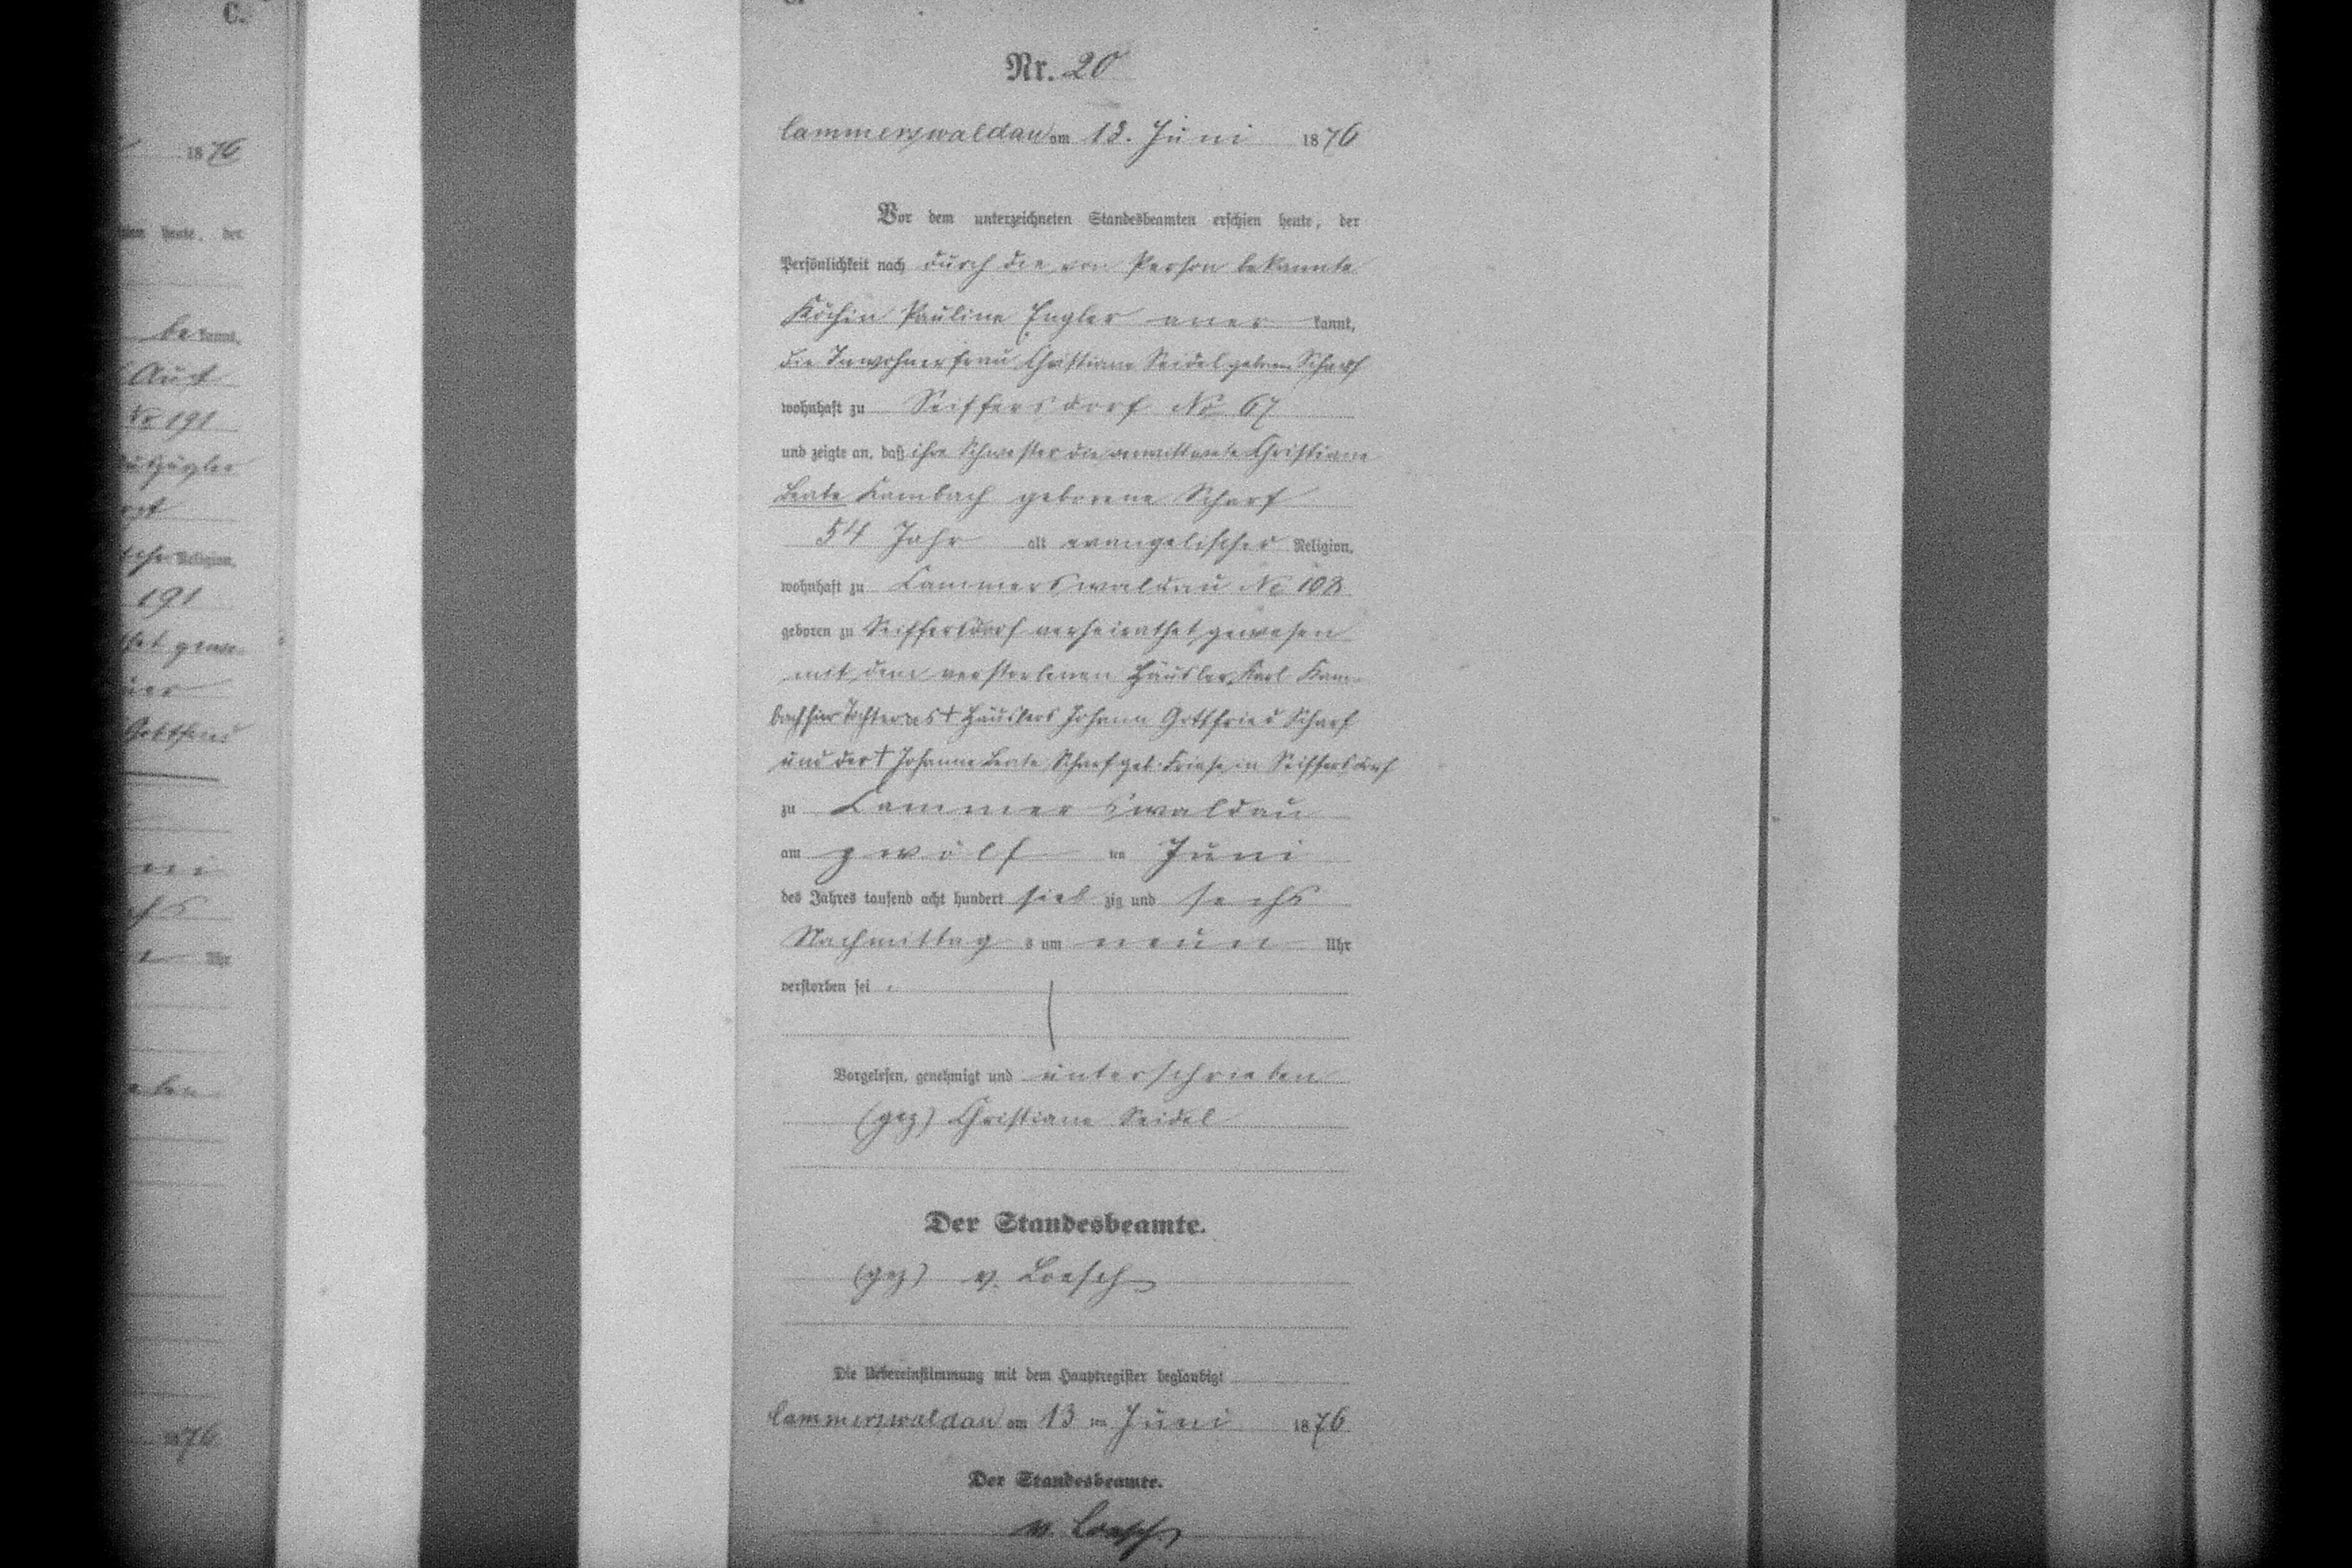 C.
1876
heute, der
be kannt,
Aust
No 191
Religion,
191
Gottfried
Uhr
1876
Nr. 20
Cammerswaldau am 13. Juni 1876
Vor dem unterzeichneten Standesbeamten erschien heute, der
Persönlichkeit nach durch die von Person bekannte
Köchin Pauline Engler aner kannt,
die Inwohnerfrau Christiane Seidel geboren Scharf
wohnhaft zu Seiffersdorf No 67
und zeigte an, daß ihre Schwester die verwittwete Christiane
Beate Kambach geborene Scharf
54 Jahr alt evangelischer Religion,
wohnhaft zu Cammerswaldau No 108
geboren zu Seiffersdorf verheirathet gewesen
mit dem verstorbenen Häusler Karl Kam-
bach hier Tochter des † Häuslers Johann Gottfried Scharf
und der † Johanne Beate Scharf geb. Friese in Seiffersdorf
zu Cammerswaldau
am zwölf ten Juni
des Jahres tausend acht hundert sieb zig und sechs
Nachmittag s um neun Uhr
verstorben sei.
Vorgelesen, genehmigt und unterschrieben
(gez) Christiane Seidel
Der Standesbeamte.
(gez) v. Loesch
Die Uebereinstimmung mit dem Hauptregister beglaubigt
Cammerswaldau am 13 ten Juni 1876
Der Standesbeamte.
v. Loesch